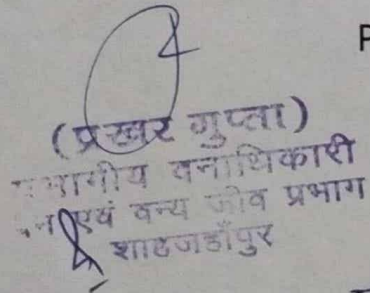 P
(प्रखर गुप्ता)
प्रभागीय वनाधिकारी
वन एवं वन्य जीव प्रभाग
शाहजहाँपुर